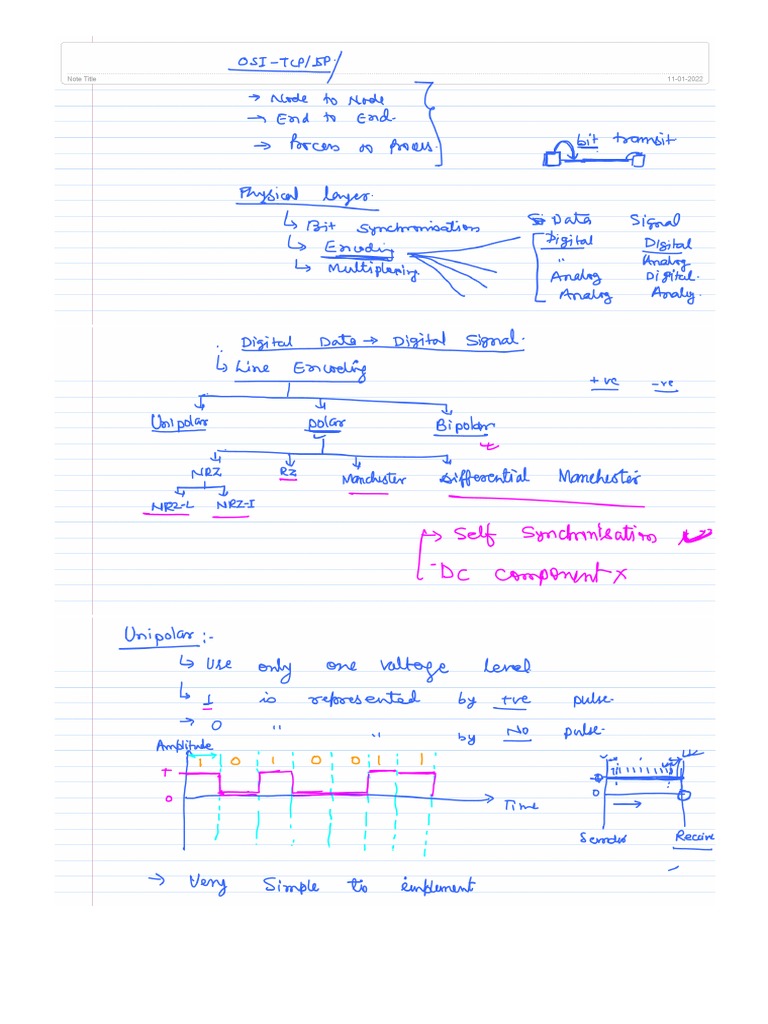 OSI-TCP/IP
Note Title
11-01-2022
→ Node to Node
→ End to End.
→ Process to Process.
bit transit
Physical Layer.
↳ Bit Synchronisation
↳ Encoding
↳ Multiplexing
Data Signal
Digital Digital
" Analog
Analog Digital.
Analog Analog.
Digital Data → Digital Signal.
↳ Line Encoding
+ve -ve
Unipolar polar Bipolar
NRZ RZ Manchester Differential Manchester
NRZ-L NRZ-I
→ Self Synchronisation
- DC component x
Unipolar :-
↳ Use only one voltage level
↳ 1 is represented by +ve pulse.
→ 0 " " by No pulse.
Amplitude
1 0 1 0 0 1 1
+
0
Time
0
Sender
Receive
→ Very Simple to implement